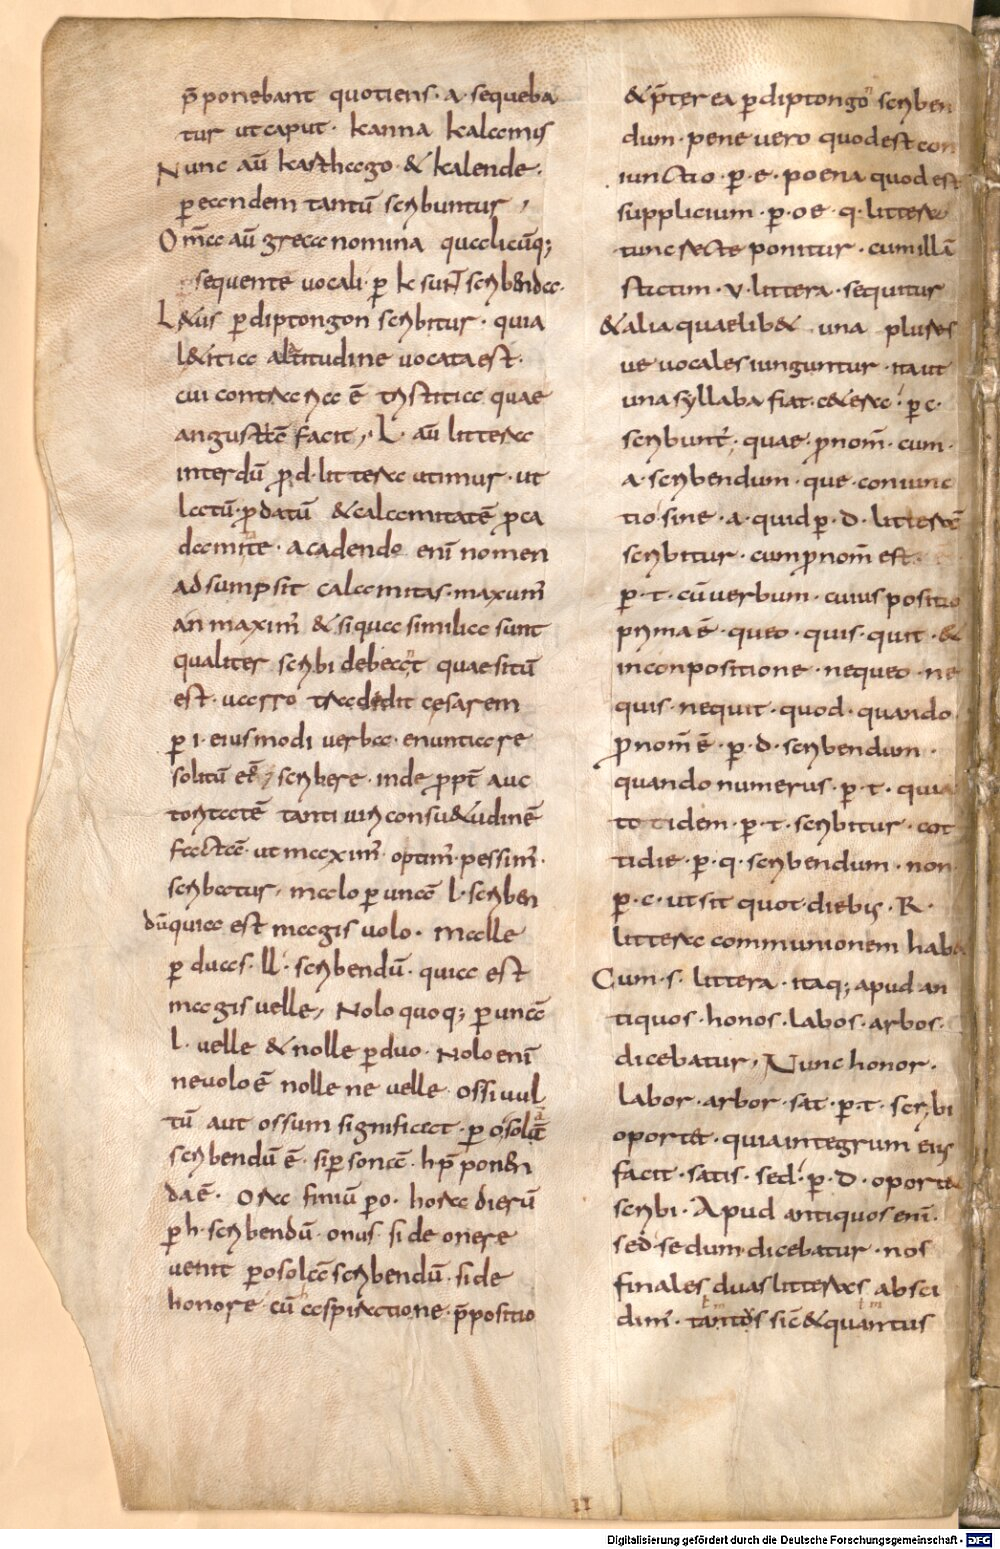 p̄ponebant quotiens · a · sequeba
tur ut caput · kanna kalamus
Nunc aū karthago · & kalende ·
p̱ eandem tantū scribuntur ,
Om̄a aū greca nomina qualicūq;
sequente vocali · p̱ k sunt scribenda ·
L&us p̱ diptongon scribitur · quia
l&itia altitudine vocata est ·
cui contraria ē tristitia quae
angustiā facit , L · aū littera
interdū ꝓ d · littera utimur · ut
latū · ꝓ datū & calamitatē ꝓ ca
damite · a cadendo enī nomen
adsumpsit calamitas · maxum̄
an maxim̄ & si qua similia sunt
qualiter scribi debeant quaesitū
est · varro tradidit cesarem
p̱ i · eiusmodi verba · enuntiare
solitū eē , scribere · inde ꝓpt̄ auc
toritatē tanti viri consu&udinē
factā · ut maxim̄ · optim̄ · pessim̄ ·
scribatur , malo p̱ unā l · scriben
dū quia est magis volo · malle
p̱ duas · ll · scribendū · quia est
magis velle , Nolo quoq; p̱ unā
l · velle & nolle p̱ duo · Nolo enī
nevolo ē nolle ne velle · ossi vul
tū aut ossum significat · p̱ o solā
scribendū ē · si p̱sonā · h p̄ponen
da ē · ora finiū p̱ o · hora dierū
p̱ h · scribendū · onus · si de onere
venit p̱ o solā scribendū · si de
honore · cū aspiratione · p̄positio
& p̄terea p̱ diptongon scriben
dum · pene vero quod est con
iunctio · p̱ · e · poena quod est
supplicium · p̱ · oe · q · littera
tunc recte ponitur · cum illā
statim · v · littera · sequitur
& alia quaelib& una plures
ve vocales iunguntur · ita ut
una syllaba fiat · c&era · p̱ c ·
scribunt̄ · quae · ꝓnom̄ · cum ·
a · scribendum · que · coniunc
tio sine · a · quid p̱ · d · litterā
scribitur · cum ꝓnom̄ est ·
p̱ · t · cū verbum · cuius positio
prima ē · queo · quis · quit · &
in conpositione · nequeo · ne
quis · nequit · quod · quando
ꝓnom̄ ē · p̱ · d · scribendum ·
quando numerus · p̱ · t · quia
totidem · p̱ · t · scribitur · cot
tidie · p̱ · q · scribendum · non
p̱ · c · ut sit quot · diebus · R ·
littera communionem hab&
Cum · s · littera · itaq; apud an
tiquos · honos · labos · arbos ·
dicebatur , Nunc honor ·
labor · arbor · sat · p̱ · t · scribi
oportet · quia integrum eius
facit · satis · sed · p̱ · d · oportet
scribi · Apud antiquos enī ·
sed · sedum · dicebatur · nos
finales duas litteras absci
dim̄ · tantus sic & quantus
11
Digitalisierung gefördert durch die Deutsche Forschungsgemeinschaft · DFG